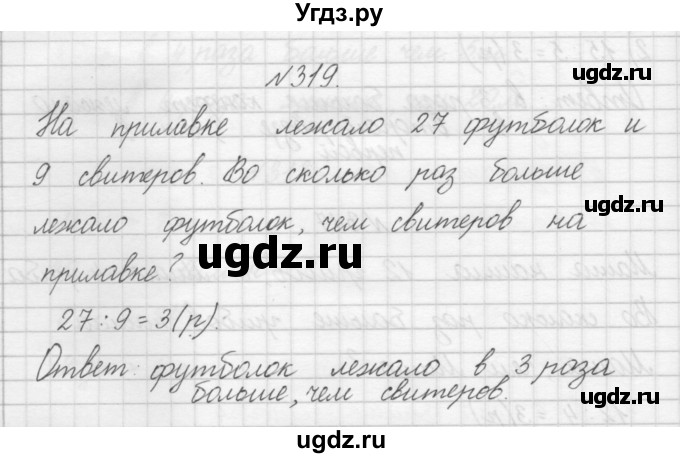 Угдз.ру
№319.
На прилавке лежало 27 футболок и
9 свитеров. Во сколько раз больше
лежало футболок, чем свитеров на
прилавке?
ugdz.ru
27:9=3(р).
Ответ: футболок лежало в 3 раза
больше, чем свитеров.
ugdz.ru
ugdz.ru